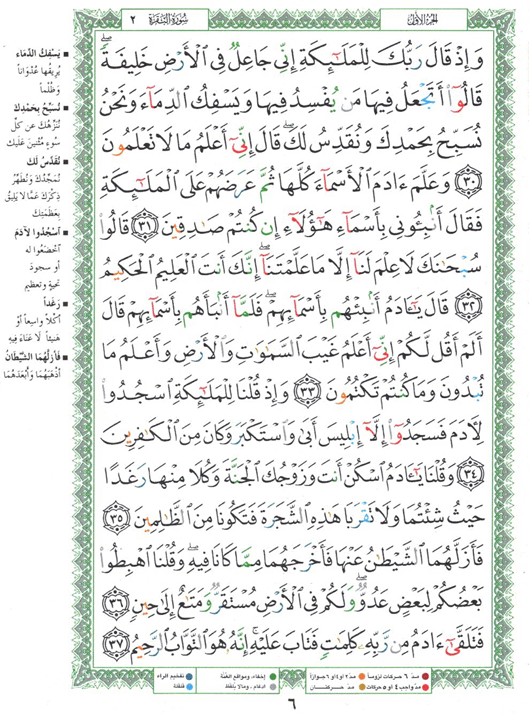 الجزء الأول
سورة البقرة ٢
وَإِذْ قَالَ رَبُّكَ لِلْمَلَٰٓئِكَةِ إِنِّى جَاعِلٌ فِى ٱلْأَرْضِ خَلِيفَةً ۖ
قَالُوٓا۟ أَتَجْعَلُ فِيهَا مَن يُفْسِدُ فِيهَا وَيَسْفِكُ ٱلدِّمَآءَ وَنَحْنُ
نُسَبِّحُ بِحَمْدِكَ وَنُقَدِّسُ لَكَ ۖ قَالَ إِنِّىٓ أَعْلَمُ مَا لَا تَعْلَمُونَ
﴿٣٠﴾ وَعَلَّمَ ءَادَمَ ٱلْأَسْمَآءَ كُلَّهَا ثُمَّ عَرَضَهُمْ عَلَى ٱلْمَلَٰٓئِكَةِ
فَقَالَ أَنۢبِـُٔونِى بِأَسْمَآءِ هَٰٓؤُلَآءِ إِن كُنتُمْ صَٰدِقِينَ ﴿٣١﴾ قَالُوا۟
سُبْحَٰنَكَ لَا عِلْمَ لَنَآ إِلَّا مَا عَلَّمْتَنَآ ۖ إِنَّكَ أَنتَ ٱلْعَلِيمُ ٱلْحَكِيمُ
﴿٣٢﴾ قَالَ يَٰٓـَٔادَمُ أَنۢبِئْهُم بِأَسْمَآئِهِمْ ۖ فَلَمَّآ أَنۢبَأَهُم بِأَسْمَآئِهِمْ قَالَ
أَلَمْ أَقُل لَّكُمْ إِنِّىٓ أَعْلَمُ غَيْبَ ٱلسَّمَٰوَٰتِ وَٱلْأَرْضِ وَأَعْلَمُ مَا
تُبْدُونَ وَمَا كُنتُمْ تَكْتُمُونَ ﴿٣٣﴾ وَإِذْ قُلْنَا لِلْمَلَٰٓئِكَةِ ٱسْجُدُوا۟
لِـَٔادَمَ فَسَجَدُوٓا۟ إِلَّآ إِبْلِيسَ أَبَىٰ وَٱسْتَكْبَرَ وَكَانَ مِنَ ٱلْكَٰفِرِينَ
﴿٣٤﴾ وَقُلْنَا يَٰٓـَٔادَمُ ٱسْكُنْ أَنتَ وَزَوْجُكَ ٱلْجَنَّةَ وَكُلَا مِنْهَا رَغَدًا
حَيْثُ شِئْتُمَا وَلَا تَقْرَبَا هَٰذِهِ ٱلشَّجَرَةَ فَتَكُونَا مِنَ ٱلظَّٰلِمِينَ ﴿٣٥﴾
فَأَزَلَّهُمَا ٱلشَّيْطَٰنُ عَنْهَا فَأَخْرَجَهُمَا مِمَّا كَانَا فِيهِ ۖ وَقُلْنَا ٱهْبِطُوا۟
بَعْضُكُمْ لِبَعْضٍ عَدُوٌّ ۖ وَلَكُمْ فِى ٱلْأَرْضِ مُسْتَقَرٌّ وَمَتَٰعٌ إِلَىٰ حِينٍ ﴿٣٦﴾
فَتَلَقَّىٰٓ ءَادَمُ مِن رَّبِّهِۦ كَلِمَٰتٍ فَتَابَ عَلَيْهِ ۚ إِنَّهُۥ هُوَ ٱلتَّوَّابُ ٱلرَّحِيمُ ﴿٣٧﴾
■ يَسْفِكُ الدِّمَاء
يُرِيقُها عُدْوَاناً
وَظُلْماً
■ نُسَبِّحُ بِحَمْدِكَ
نُنَزِّهُكَ عن كلِّ
سُوءٍ مُثْنِينَ عَلَيك
■ نُقَدِّسُ لَكَ
نُمَجِّدُكَ وَنُطَهِّرُ
ذِكْرَكَ عَمَّا لا يَلِيقُ
بِعَظَمَتِكَ
■ اسْجُدُوا لآدَمَ
اخْضَعُوا له
أو سجودَ
تحيةٍ وتعظيمٍ
■ رَغَداً
أكْلاً واسِعاً أوْ
هَنِيئاً لا عَنَاءَ فِيهِ
■ فَأَزَلَّهُمَا الشَّيْطَانُ
أذْهَبَهُمَا وَأبْعَدَهُمَا
مدّ ٦ حركات لزوماً
مدّ ٢ أو ٤ أو ٦ جوازاً
إخفاء، ومواقع الغنّة
تفخيم الراء
مدّ واجب ٤ أو ٥ حركات
مدّ حركتان
ادغام، وما لا يُلفظ
قلقلة
٦